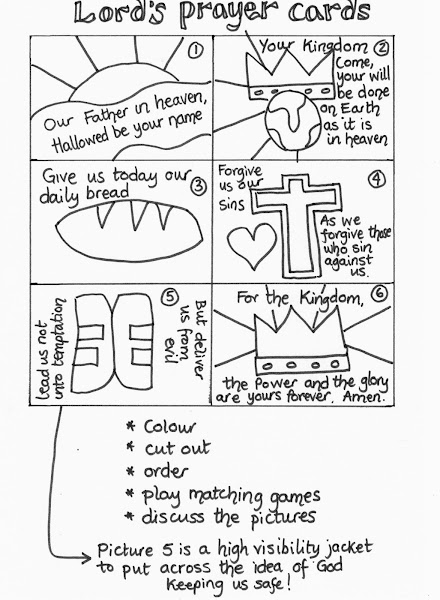 Lord's prayer cards
1
Our Father in heaven,
Hallowed be your name
Your Kingdom 2
Come,
your will
be done
on Earth
as it is
in heaven
Give us today our
daily bread
3
Forgive
us our
sins
4
As we
forgive those
who sin
against
us.
5
Lead us not
into temptation
But deliver
us from
evil
For the Kingdom, 6
the Power and the glory
are yours forever. Amen.
* Colour
* cut out
* order
* play matching games
* discuss the pictures
Picture 5 is a high visibility jacket
to put across the idea of God
Keeping us safe!